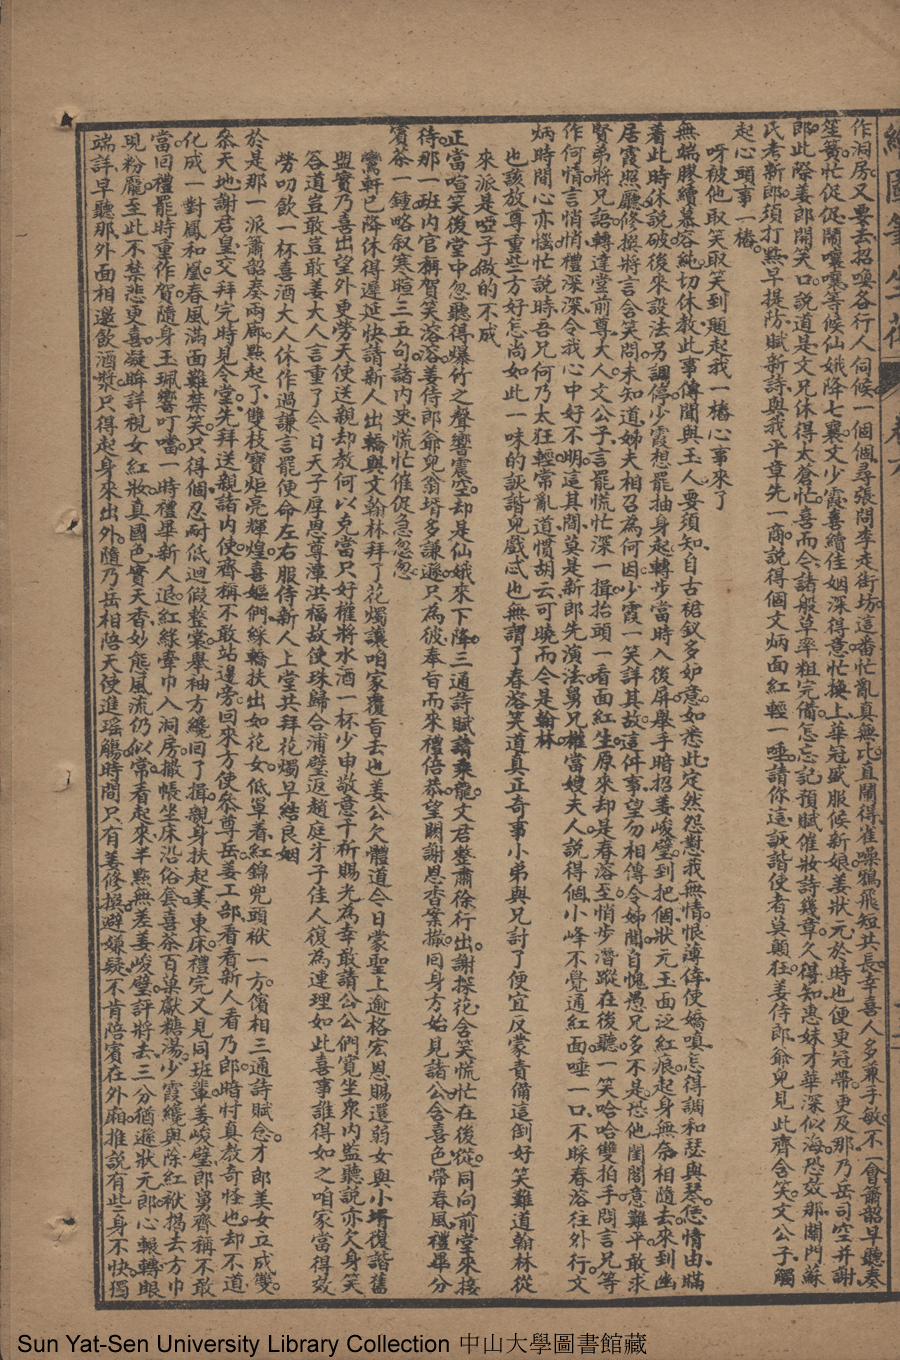 繪圖筆生花 卷六
作洞房又要去招喚各行人伺候一個個尋張問李走街坊這番忙亂真無比直鬧得雀噪鴉飛短共長幸喜人多兼手敏不一會蕭韶早聽奏
笙簧忙促促鬧嚷嚷等候仙娥降七襄文少霞喜續佳姻深得意忙換上華冠盛服候新娘姜狀元於時也便更冠帶更及那乃岳司空并謝
郎此際姜郎開笑口說道是文兄休得太倉忙喜而今諸般草率粗完備怎忘記預賦催妝詩幾章久得知惠妹才華深似海恐效那闌門蘇
氏考新郎須打點早提防賦新詩與我平章先一商說得個文炳面紅輕一唾請你這詼諧使者莫顛狂姜侍郎爺兒見此齊含笑文公子觸
起心頭事一樁
呀被他取笑取笑到題起我一樁心事來了
無端膠續慕容純切休教此事傳聞與玉人要須知自古裙釵多妒意如悉此定然怨懟我無情恨薄倖使嬌嗔怎得調和瑟與琴恁情由瞞
着此時休說破後來設法另調停少霞想罷抽身起轉步當時入後屏舉手暗招姜峻璧到把個狀元玉面泛紅痕起身無奈相隨去來到幽
居霞照廳修撰將言含笑問未知道姊夫相召為何因少霞一笑詳其故這件事望勿相傳令姊聞自愧愚兄多不是恐他閨閣意難平敢求
賢弟將兄語轉達堂前尊大人文公子言罷慌忙深一揖抬頭一看面紅生原來却是春溶至悄步潛蹤在後聽一笑哈哈雙拍手問言兄等
作何情言悄悄禮深深令我心中好不明這其間莫是新郎先演法舅兄權當嫂夫人說得個小峰不覺通紅面唾一口不睬春溶往外行文
炳時間心亦惱忙說時吾兄何乃太狂輕常亂道慣胡云可曉而今是翰林
也該放尊重些方好怎尚如此一味的詼諧兒戲忒也無謂了春溶笑道真正奇事小弟與兄討了便宜反蒙責備這倒好笑難道翰林從
來派是啞子做的不成
正當喧笑後堂中忽聽得爆竹之聲響震空却是仙娥來下降三通詩賦請乘龍文君整肅徐行出謝探花含笑慌忙在後從同向前堂來接
待那一班內官稱賀笑溶溶姜侍郎爺兒翁壻多謙遜只為彼奉旨而來禮倍恭望闕謝恩香案撤回身方始見諸公含喜色帶春風禮畢分
賓茶一鍾略叙寒暄三五句諸內史慌忙催促急忽忽
鸞軒已降休得遲延快請新人出轎與文翰林拜了花燭讓咱家覆旨去也姜公欠體道今日蒙聖上逾格宏恩賜還弱女與小壻復諧舊
盟實乃喜出望外更勞天使送親却教何以克當只好權將水酒一杯少申敬意千祈賜光為幸敢請公公們寬坐衆內監聽說亦欠身笑
答道豈敢豈敢姜大人言重了今日天子厚恩尊潭洪福故使珠歸合浦璧返趙庭才子佳人復為連理如此喜事誰得如之咱家當得效
勞叨飲一杯喜酒大人休作過謙言罷使命左右服侍新人上堂共拜花燭早結良姻
於是那一派簫韶奏兩廊點起了雙枝寶炬亮輝煌喜嫗們綵轎扶出如花女低罩着紅錦兜頭袱一方儐相三通詩賦念才郎美女立成雙
叅天地謝君皇交拜完時見令堂先拜送親諸內使齊稱不敢站邊旁回來方便叅尊岳姜工部看看新人看乃郎暗忖真教奇怪也却不道
化成一對鳳和凰春風滿面難禁笑只得個忍耐低迴假整裳舉袖方纔回了揖親身扶起美東床禮完又見同班輩姜峻璧郎舅齊稱不敢
當回禮罷時重作賀隨身玉珮響叮噹一時禮畢新人退紅綠牽巾入洞房撒帳坐床沿俗套喜茶百菓獻糖湯少霞纔與除紅袱揭去方巾
現粉龐至此不禁悲更喜凝眸詳視女紅妝真國色實天香妙態風流仍似常看起來半點無差姜峻璧評將去三分猶遜狀元郎心輾轉眼
端詳早聽那外面相邀飲酒漿只得起身來出外隨乃岳相陪天使進瑤觴時間只有姜修撰避嫌疑不肯陪賓在外廂推說有些身不快獨
Sun Yat-Sen University Library Collection 中山大學圖書館藏